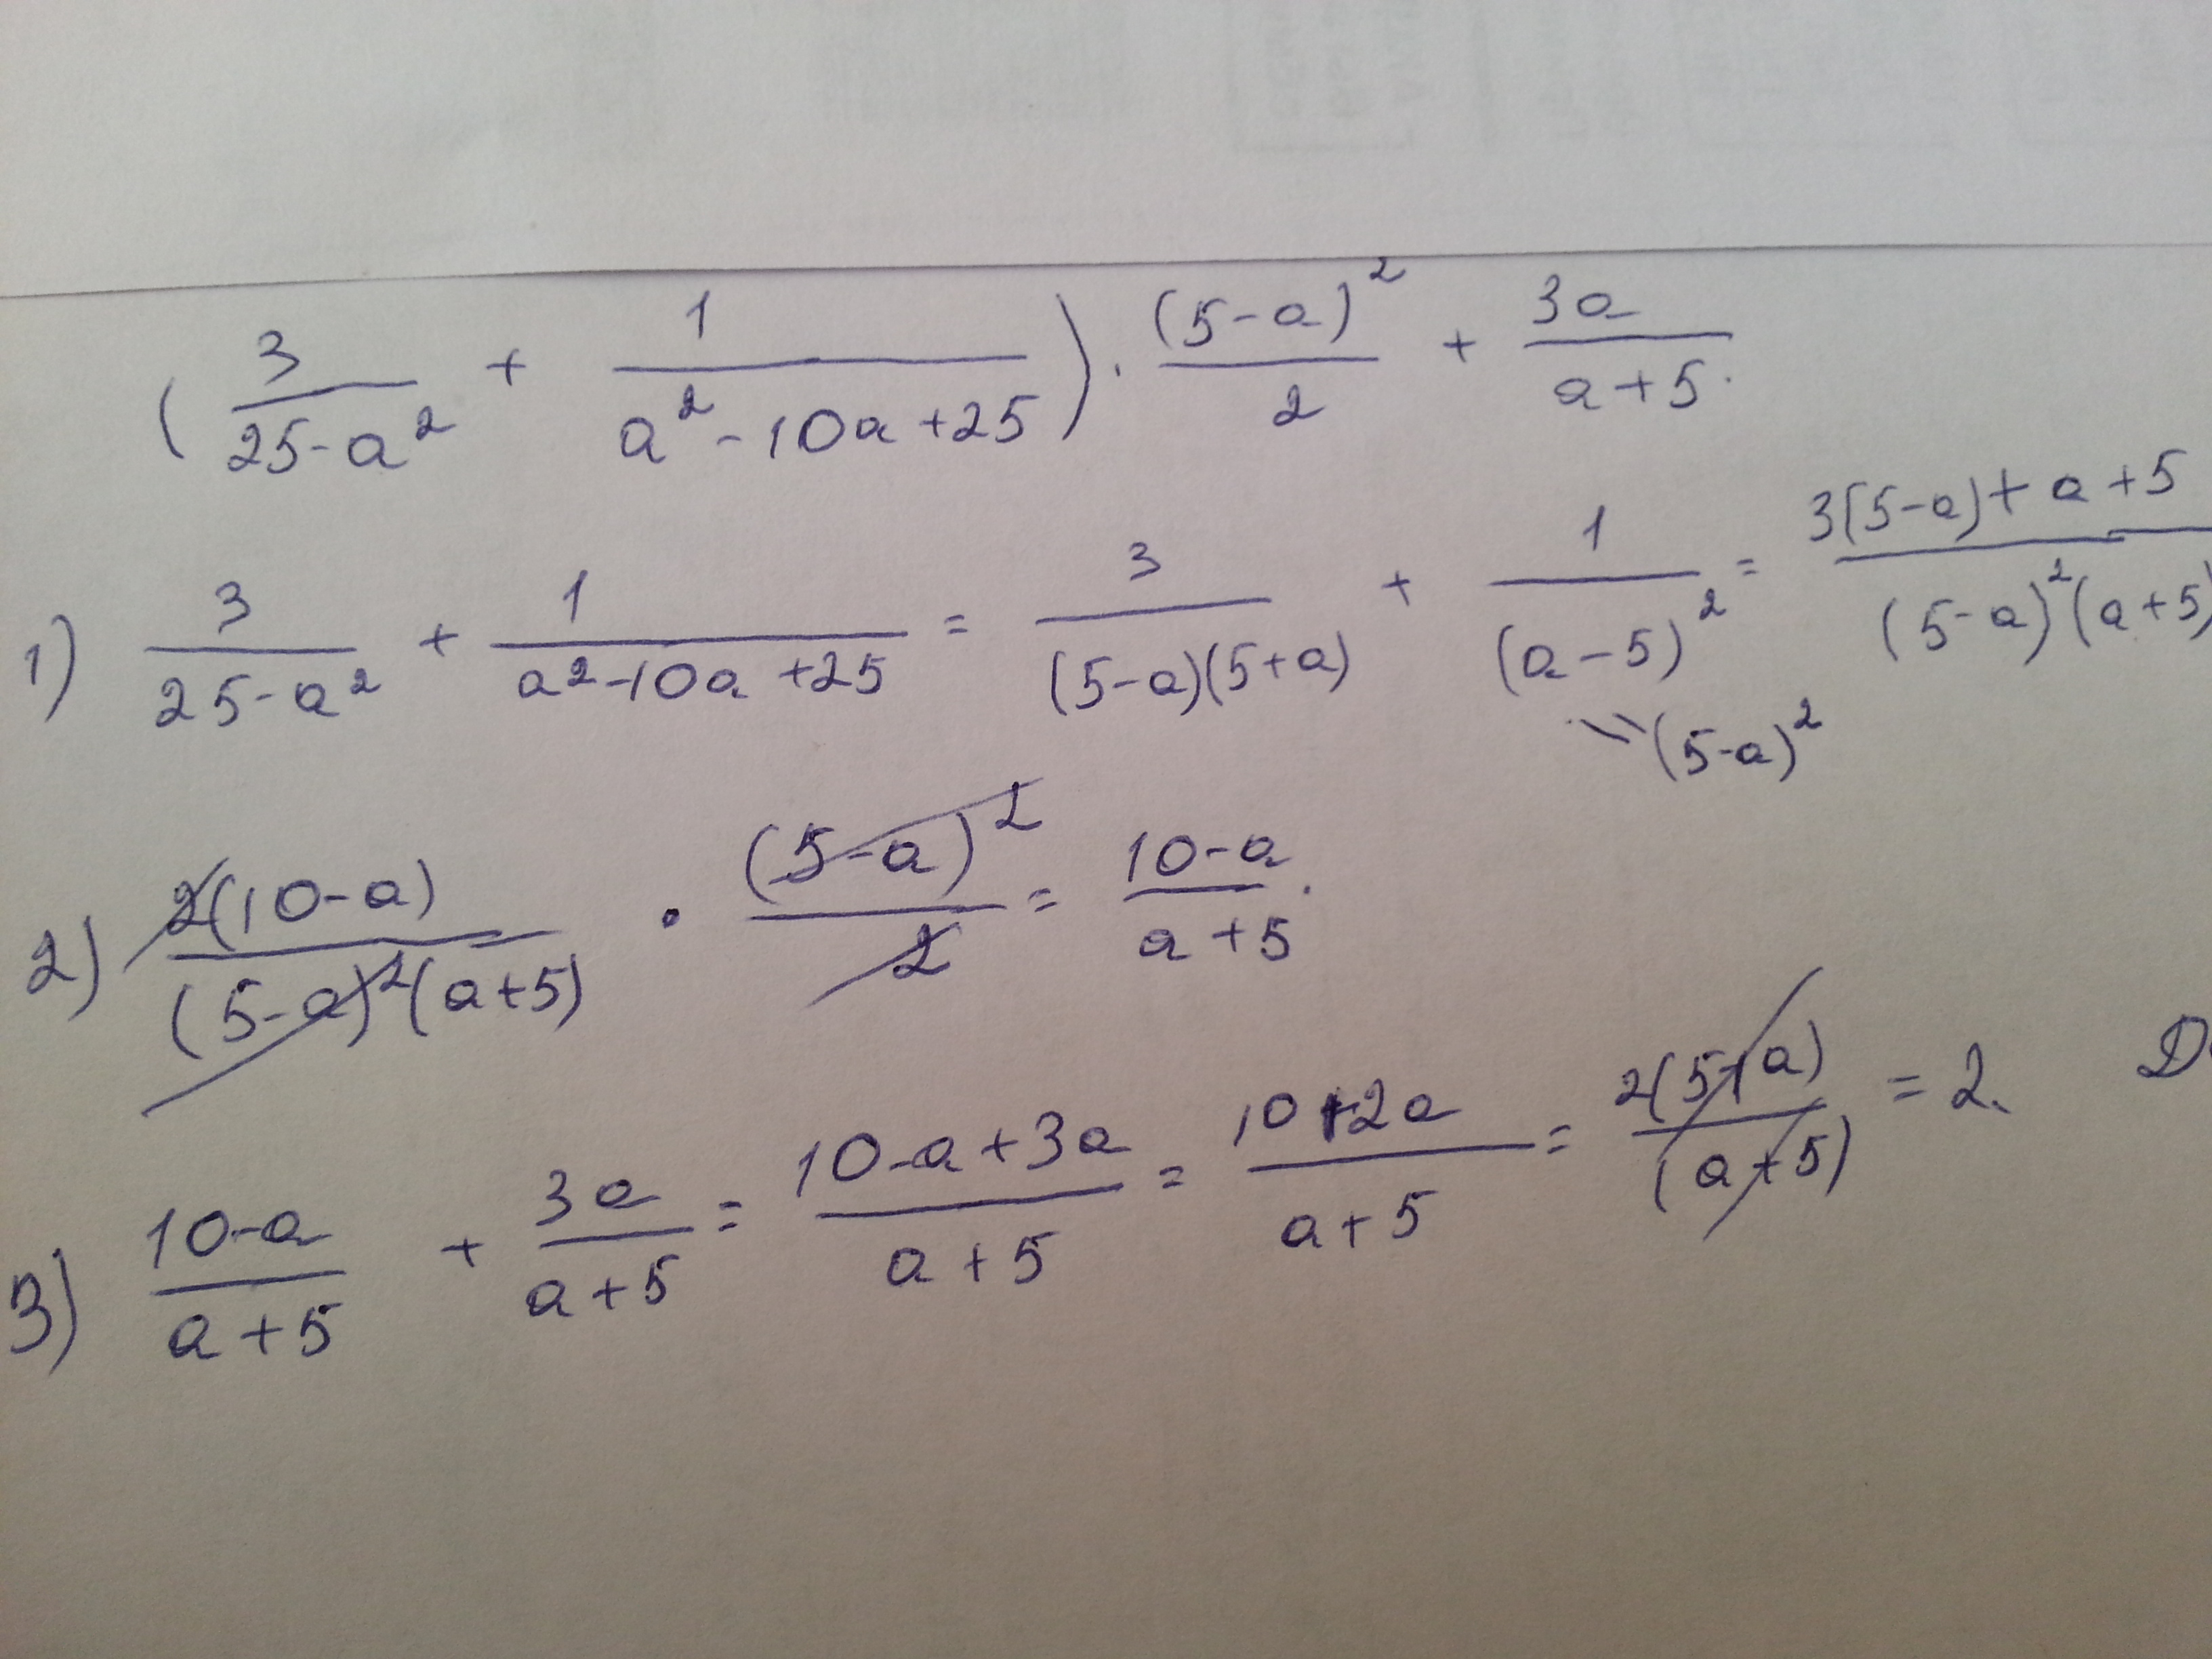 (3/(25-a²) + 1/(a²-10a+25)) · (5-a)²/2 + 3a/(a+5).
1) 3/(25-a²) + 1/(a²-10a+25) = 3/((5-a)(5+a)) + 1/(a-5)² = (3(5-a)+a+5)/((5-a)²(a+5)
"(5-a)²
2) 2(10-a)/((5-a)²(a+5)) · (5-a)²/2 = (10-a)/(a+5).
3) (10-a)/(a+5) + 3a/(a+5) = (10-a+3a)/(a+5) = (10+2a)/(a+5) = 2(5+a)/(a+5) = 2.